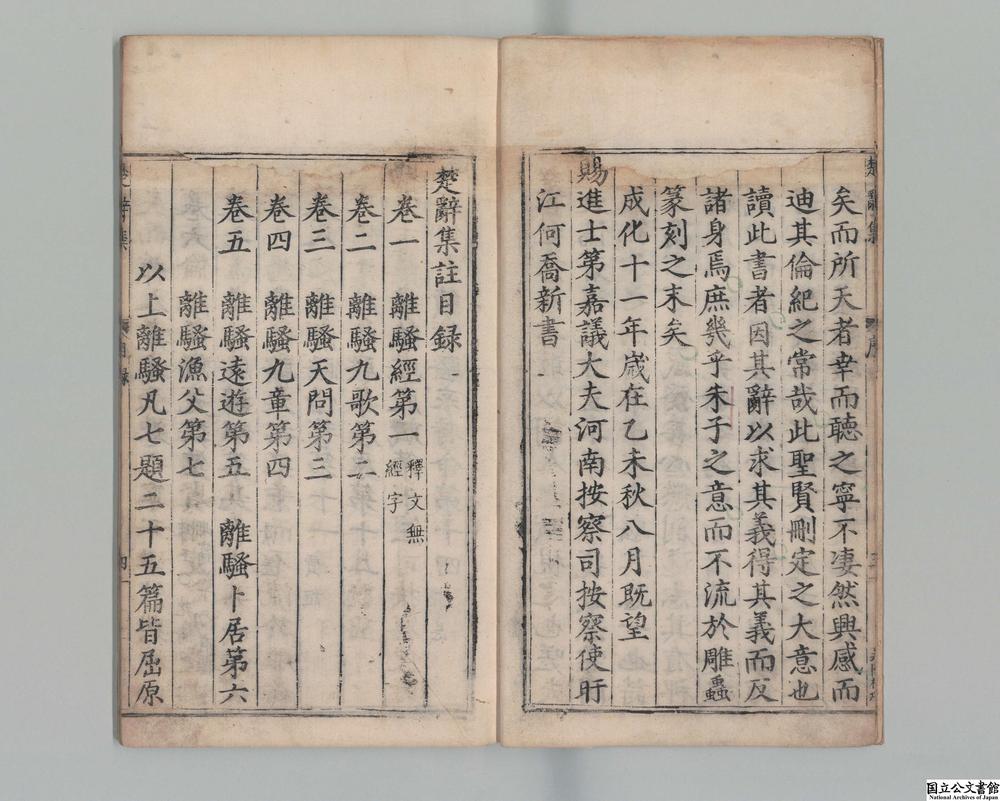 矣而所天者幸而聽之寧不凄然興感而
迪其倫紀之常哉此聖賢刪定之大意也
讀此書者因其辭以求其義得其義而反
諸身焉庶幾乎朱子之意而不流於雕蟲
篆刻之末矣
成化十一年歲在乙未秋八月既望
賜進士第嘉議大夫河南按察司按察使旴
江何喬新書
楚辭集註目録
卷一 離騷經第一 釋文無經字
卷二 離騷九歌第二
卷三 離騷天問第三
卷四 離騷九章第四
卷五 離騷遠遊第五 離騷卜居第六
離騷漁父第七
以上離騷凡七題二十五篇皆屈原
国立公文書館
National Archives of Japan